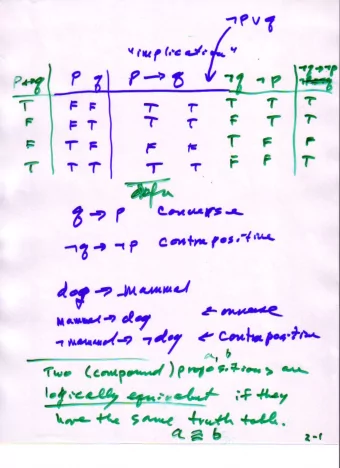 ¬p∨q
"implication"
p↔q p q p → q ¬q ¬p ¬q→¬p
T F F T T T T T
F F T T T F T T
F T F F F T F F
T T T T T F F T
defn
q → p converse
¬q → ¬p contrapositive
dog → mammal
mammal → dog ← converse
¬mammal → ¬dog ← contrapositive
a, b
Two (compound) propositions are
logically equivalent if they
have the same truth table.
a ≡ b
2-1